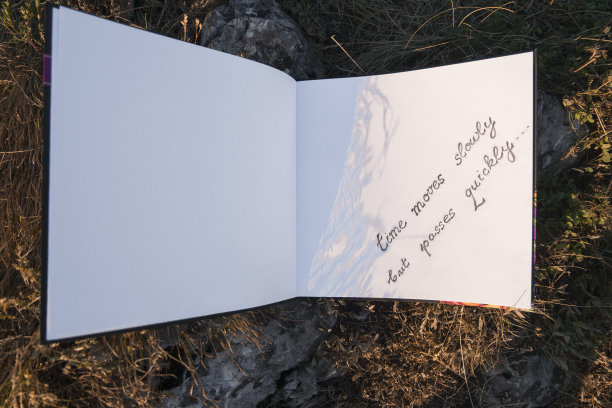 time moves slowly
but passes quickly...